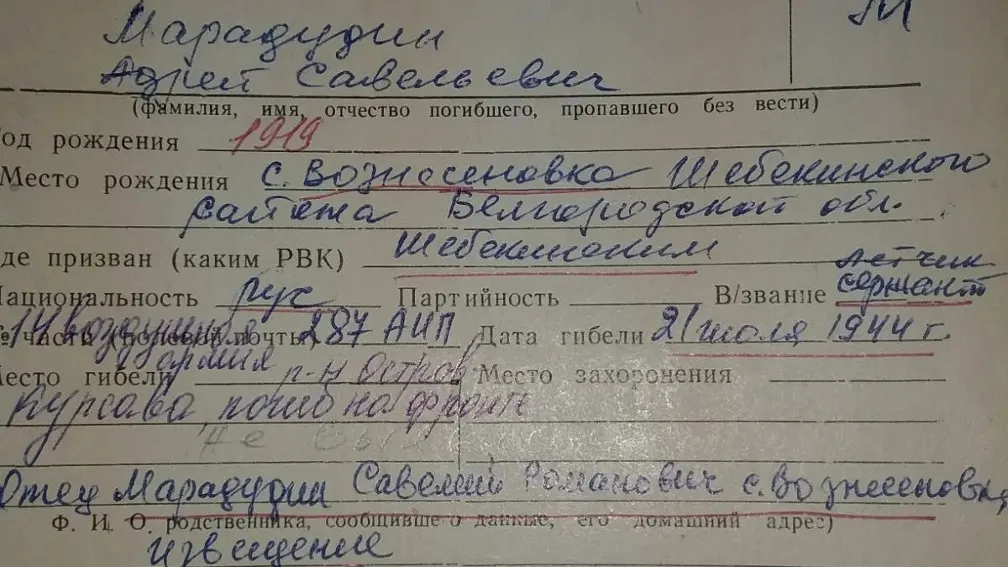 М
Марадудин
Адрей Савельевич
(фамилия, имя, отчество погибшего, пропавшего без вести)
од рождения 1919
Место рождения с. Вознесеновка Шебекинского
района Белгородской обл.
де призван (каким РВК) Шебекинским
летчик
Национальность рус Партийность В/звание сержант
14 воздушная
№ части (полевой почты) 287 АИП Дата гибели 21 июля 1944 г.
армия
Место гибели р-н Остров Место захоронения
погиб на фронте
не
Отец Марадудин Савелий Романович с. Вознесеновка
Ф. И. О. родственника, сообщившего данные, его домашний адрес)
извещение